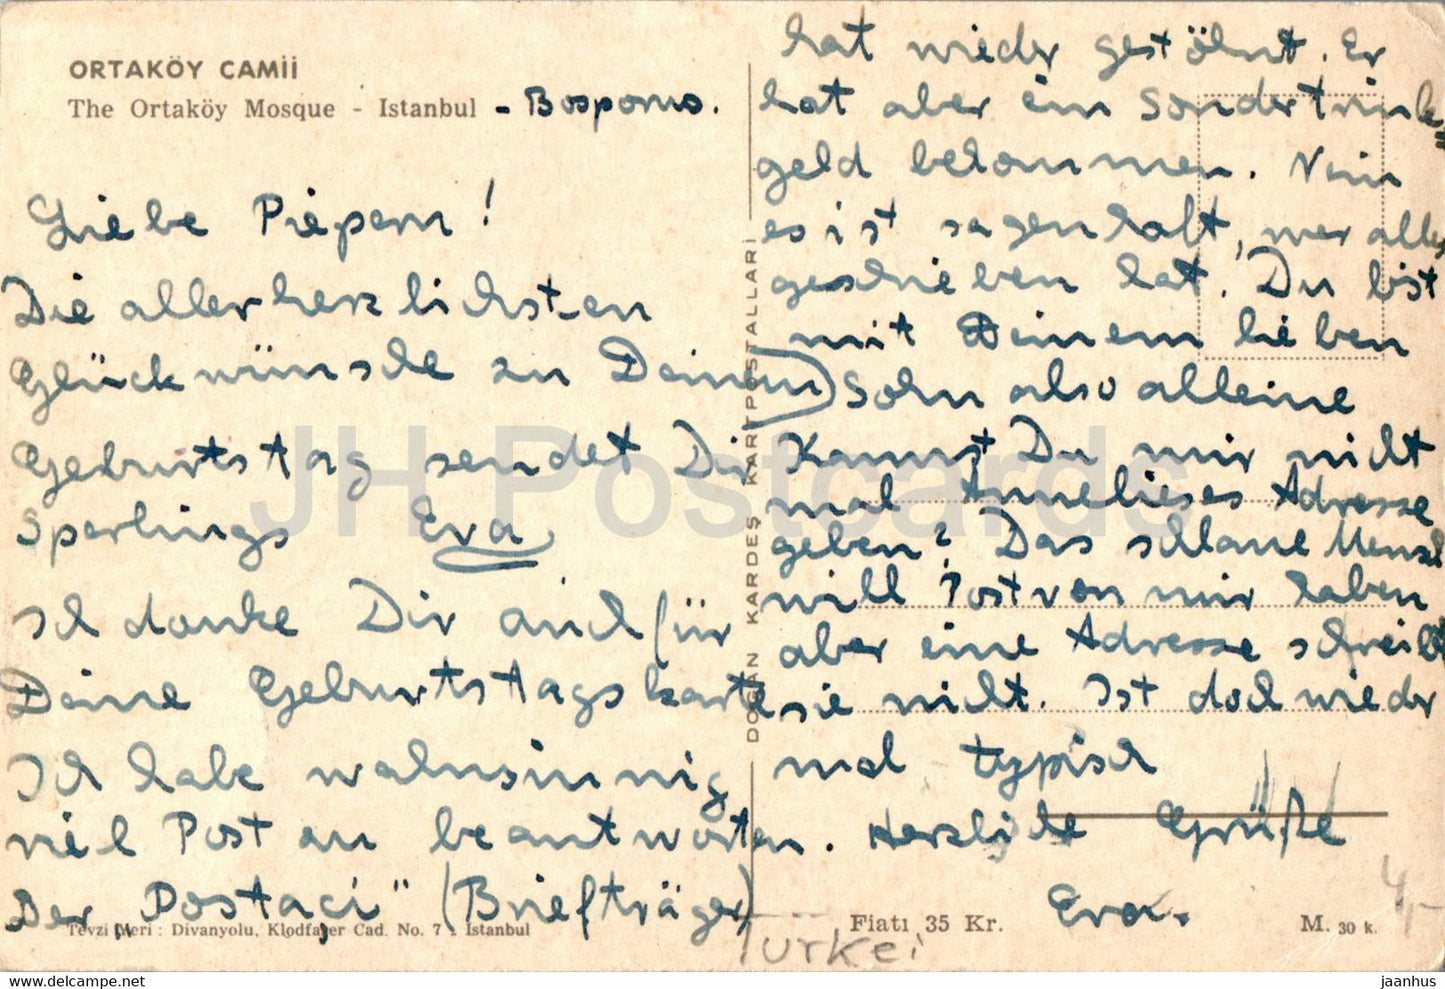 ORTAKÖY CAMİİ
The Ortaköy Mosque - Istanbul - Bosporus.
Liebe Piepern!
Die allerherzlichsten
Glückwünsche zu Deinem
Geburtstag sendet Dir
Sperlings Eva
Ich danke Dir auch für
Deine Geburtstagskarte
Ich habe wahnsinnig
viel Post zu beantworten.
Der „Postaçi" (Briefträger)
hat wieder gestöhnt. Er
hat aber ein Sondertrink-
geld bekommen. Nein
es ist sagenhaft, wer alles
geschrieben hat. Du bist
mit Deinem lieben
Sohn also alleine
Kannst Du mir nicht
mal Annelieses Adresse
geben? Das schlaue Mensch
will Post von mir haben
aber eine Adresse schreibt
sie nicht. Ist doch wieder
mal typisch
Herzliche Grüße
Eva.
DOĞAN KARDEŞ KARTPOSTALLARI
Tevzi Yeri : Divanyolu, Klodfarer Cad. No. 7 - İstanbul
Fiatı 35 Kr.
M. 30 k.
Türkei
4,-
JH Postcards
jaanhus